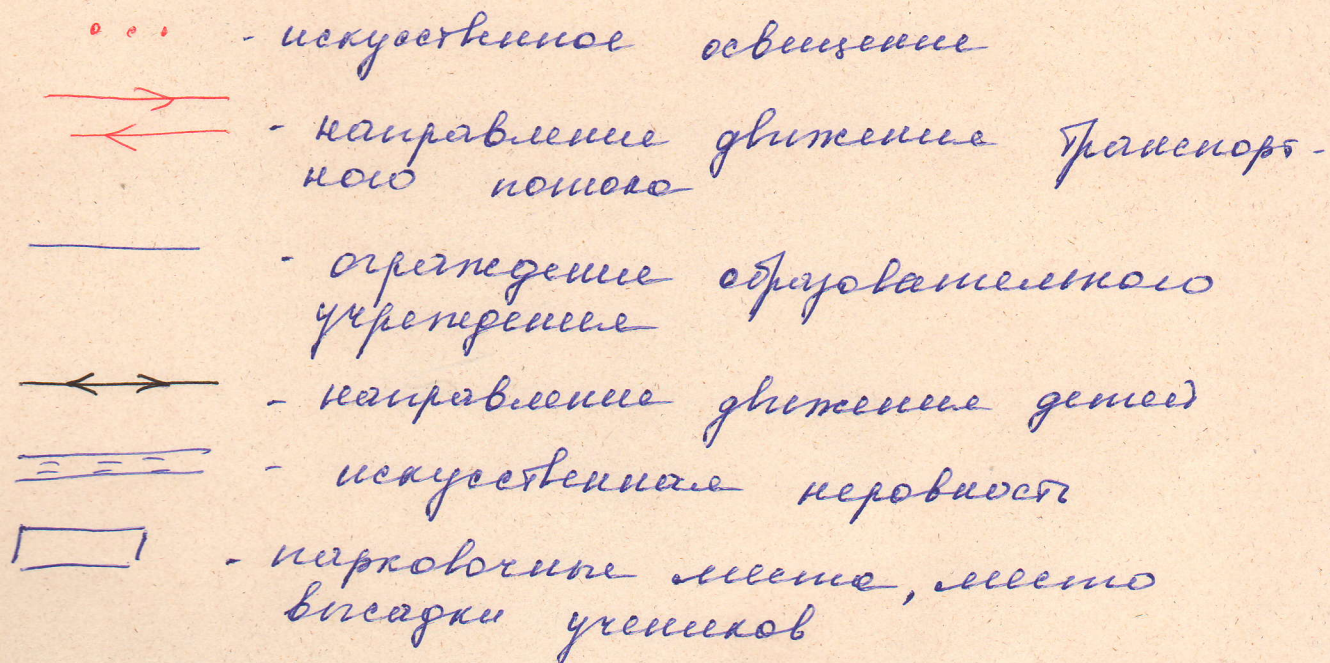 - искусственное освещение
- направление движения транспорт-
ного потока
- ограждение образовательного
учреждения
- направление движения детей
- искусственная неровность
- парковочные места, место
высадки учеников